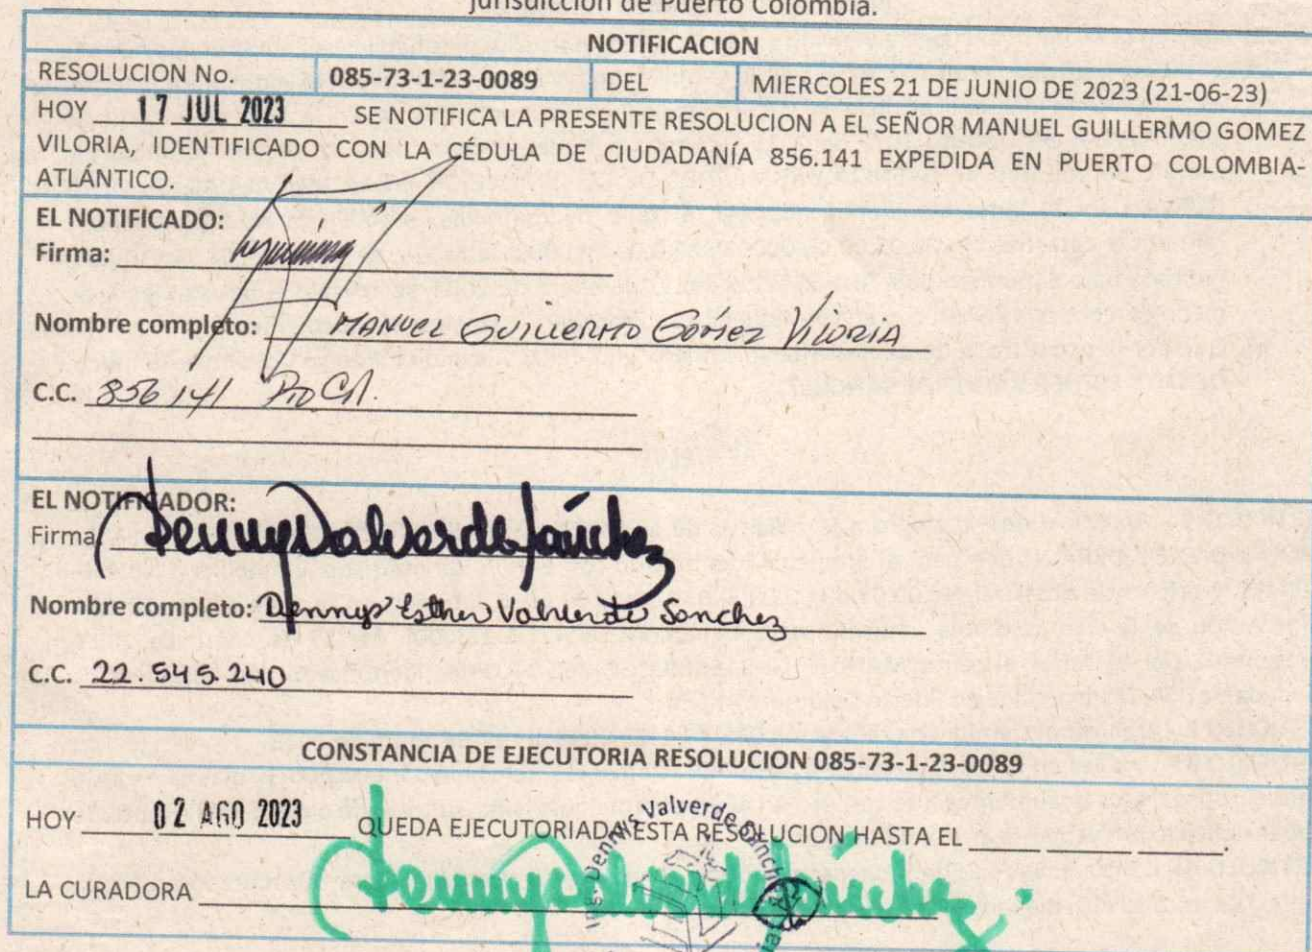 jurisdicción de Puerto Colombia.
NOTIFICACION
RESOLUCION No. 085-73-1-23-0089 DEL MIERCOLES 21 DE JUNIO DE 2023 (21-06-23)
HOY 17 JUL 2023 SE NOTIFICA LA PRESENTE RESOLUCION A EL SEÑOR MANUEL GUILLERMO GOMEZ
VILORIA, IDENTIFICADO CON LA CÉDULA DE CIUDADANÍA 856.141 EXPEDIDA EN PUERTO COLOMBIA-
ATLÁNTICO.
EL NOTIFICADO:
Firma:
Nombre completo: MANUEL GUILLERMO GÓMEZ VILORIA
C.C. 856141
EL NOTIFICADOR:
Firma DennysValverdeSánchez
Nombre completo: Dennys Esther Valverde Sanchez
C.C. 22.545.240
CONSTANCIA DE EJECUTORIA RESOLUCION 085-73-1-23-0089
HOY 02 AGO 2023 QUEDA EJECUTORIADA ESTA RESOLUCION HASTA EL
LA CURADORA DennysValverdeSánchez
Ing. Dennys Valverde Sánchez